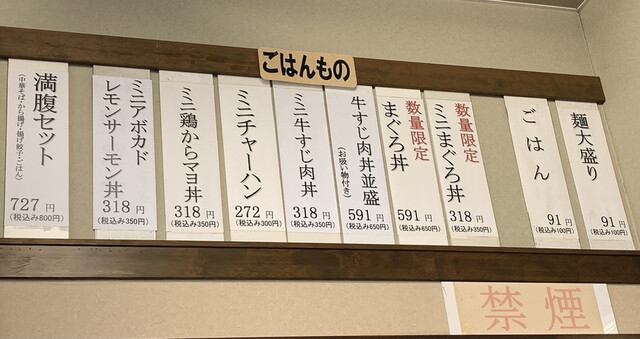 ごはんもの
満腹セット
(中華そば・から揚げ・揚げ餃子・ごはん)
727円
(税込み800円)
ミニアボカド
レモンサーモン丼
318円
(税込み350円)
ミニ鶏からマヨ丼
318円
(税込み350円)
ミニチャーハン
272円
(税込み300円)
ミニ牛すじ肉丼
318円
(税込み350円)
牛すじ肉丼並盛
(お吸い物付き)
591円
(税込み650円)
数量限定
まぐろ丼
591円
(税込み650円)
数量限定
ミニまぐろ丼
318円
(税込み350円)
ごはん
91円
(税込み100円)
麺大盛り
91円
(税込み100円)
禁煙